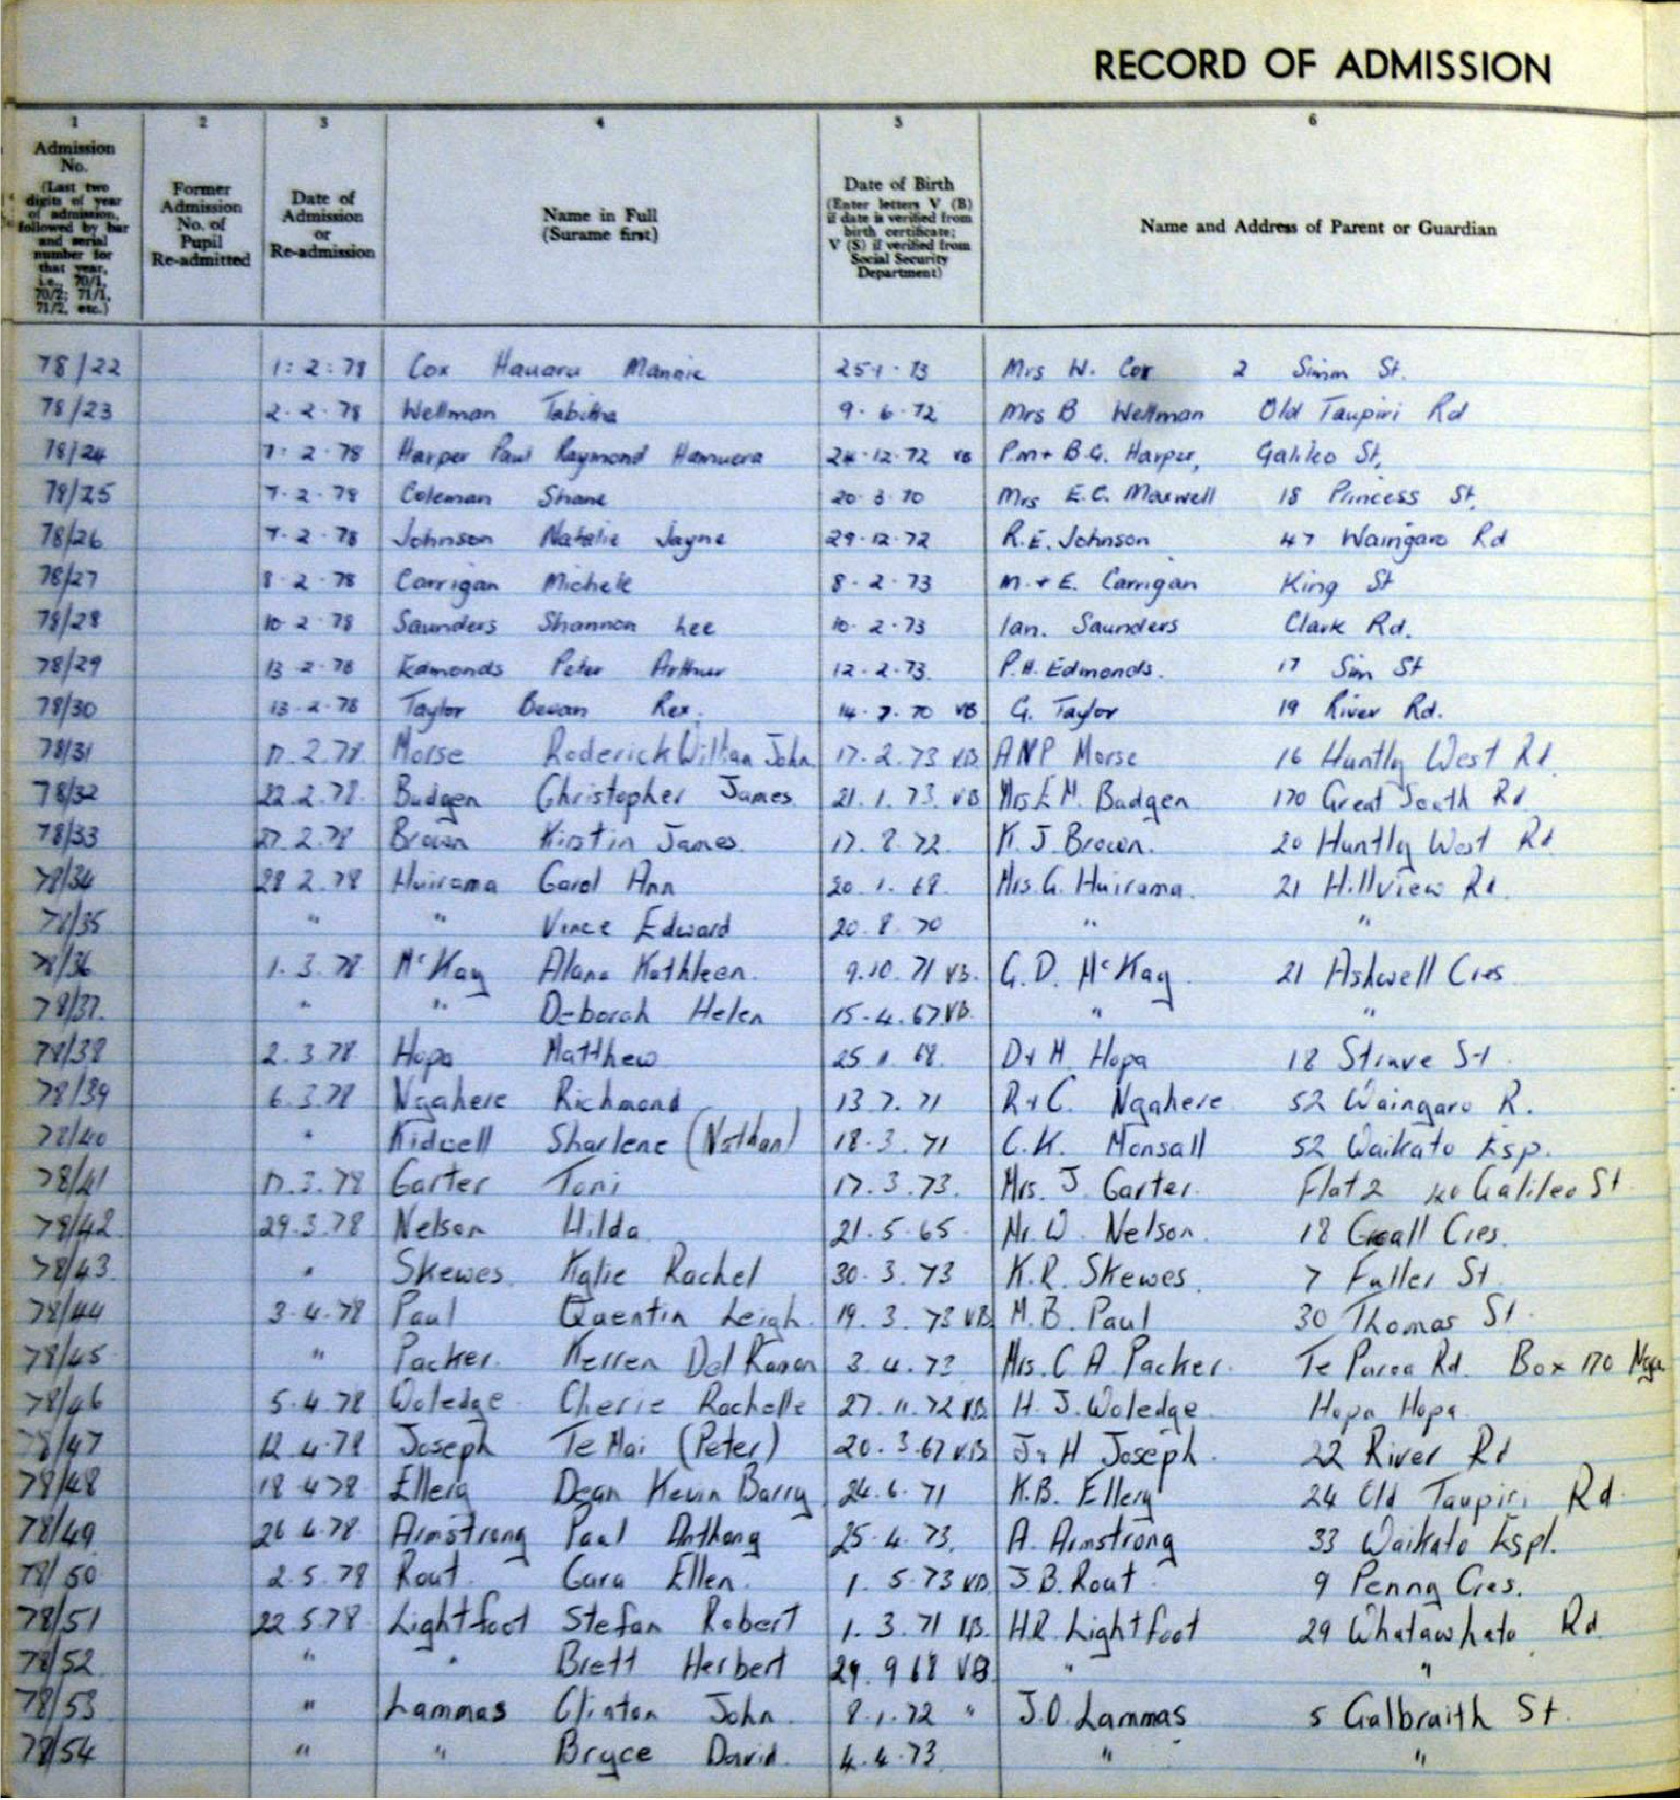 RECORD OF ADMISSION
1 2 3 4 5 6
Admission No. (Last two digits of year of admission, followed by bar and serial number for that year, i.e., 70/1, 70/2; 71/1, 71/2, etc.)
Former Admission No. of Pupil Re-admitted
Date of Admission or Re-admission
Name in Full (Surame first)
Date of Birth (Enter letters V (B) if date is verified from birth certificate; V (S) if verified from Social Security Department)
Name and Address of Parent or Guardian
78/22 1:2:78 Cox Hauaru 25.1.73 Mrs W. Cox 2 Simm St.
78/23 2.2.78 Wellman Tabitha 9.6.72 Mrs B Wellman Old Taupiri Rd
78/24 7.2.78 Harper Paul Raymond Hamuera 24.12.72 VB P.M + B.G. Harper, Galileo St,
78/25 7.2.78 Coleman Shane 20.3.70 Mrs E.C. Maxwell 18 Princess St.
78/26 7.2.78 Johnson Natalie Jayne 29.12.72 R.E. Johnson 47 Waingaro Rd
78/27 8.2.78 Carrigan Michele 8.2.73 M. + E. Carrigan King St
78/28 10.2.78 Saunders Shannon Lee 10.2.73 Ian. Saunders Clark Rd.
78/29 13.2.78 Edmonds Peter Arthur 12.2.73. P.H. Edmonds. 17 Sim St
78/30 13.2.78 Taylor Bevan Rex. 14.7.70 VB G. Taylor 19 River Rd.
78/31 17.2.78. Morse Roderick William John 17.2.73 V.B. ANP Morse 16 Huntly West Rd.
78/32 22.2.78. Budgen Christopher James 21.1.73. VB Mrs E M. Budgen 170 Great South Rd
78/33 27.2.78 Brown Kirstin James. 17.8.72. K. J. Brown. 20 Huntly West Rd
78/34 28 2.78 Huirama Carol Ann 20.1.68. Mrs. G. Huirama. 21 Hillview Rd.
78/35 " " Vince Edward 20.8.70 " "
78/36 1.3.78 McKay Alana Kathleen. 9.10.71 VB. G. D. McKay. 21 Ashwell Cres
78/37. " " Deborah Helen 15.4.67 VB. " "
78/38 2.3.78. Hopa Matthew 25.11.68. D + M. Hopa 18 Struve St.
78/39 6.3.78 Ngahere Richmond 13.7.71 R + C. Ngahere 52 Waingaro R.
78/40 " Kidwell Sharlene (Nathan) 18.3.71 C.K. Monsall 52 Waikato Esp.
78/41 17.3.78 Carter Toni 17.3.73. Mrs. J. Carter. Flat 2 Galileo St
78/42. 29.3.78 Nelson Hilda. 21.5.65. Mr. W. Nelson. 18 Cres.
78/43. " Skewes Kylie Rachel 30.3.73 K.R. Skewes. 7 Fuller St
78/44 3.4.78 Paul Quentin Leigh. 19.3.73 VB M.B. Paul 30 Thomas St.
78/45 " Packer. Kerren Del Ramon 3.4.73 Mrs. C A. Packer. Te Paroa Rd. Box 170 Nga
78/46 5.4.78 Woledge Cherie Rachelle 27.11.72 V.B. H. J. Woledge. Hopu Hopu
78/47 12.4.78 Joseph Te Hai (Peter) 20.3.67 V.B. J + H Joseph. 22 River Rd
78/48 18.4.78. Ellery Dean Kevin Barry 24.6.71 K.B. Ellery 24 Old Taupiri Rd.
78/49 26 4.78. Armstrong Paul Anthony 25.4.73. A. Armstrong 33 Waikato Espl.
78/50 2.5.78 Rout. Cara Ellen. 1.5.73 VB J.B. Rout. 9 Penny Cres.
78/51 22.5.78 Lightfoot Stefan Robert 1.3.71 VB. H.R. Lightfoot 29 Whatawhata Rd.
78/52. " " Brett Herbert 29.9.68 VB " "
78/53 " Lammas Clinton John. 8.1.72 " J.D. Lammas 5 Galbraith St.
78/54 " " Bryce David. 4.4.73 " "